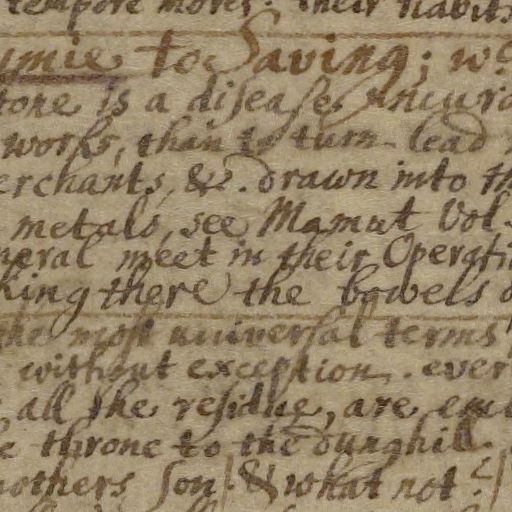 tempore mores. their habits
ymie to Saving; wc
tone is a disease incura
works, than to turn lead
erchants, &. drawn into th
metals, see Mamut Vol.
neral meet in their Operati
king there the bowels o
the most universal terms
without exception. ever
all the residue, are exc
e throne to the dunghil.
mothers son. & what not